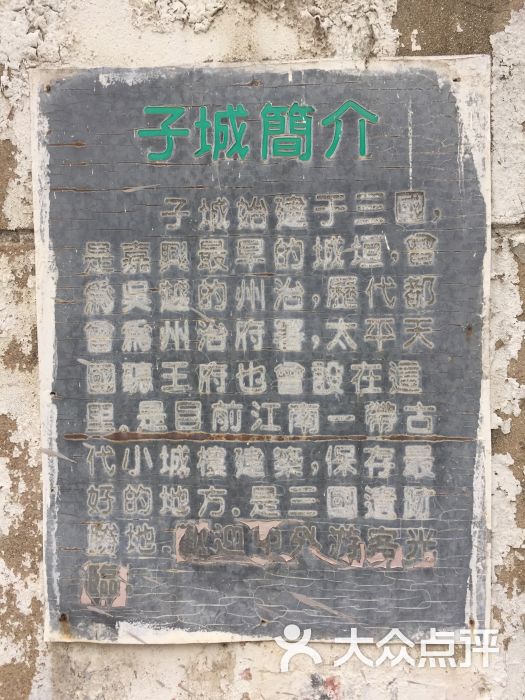 子城簡介
子城始建于三國，
是嘉興最早的城垣，曾
爲吳越的州治，歷代都
曾爲州治府署，太平天
國聽王府也曾設在這
里．是目前江南一帶古
代小城樓建築，保存最
好的地方．是三國遺跡
勝地．歡迎中外游客光
臨
大众点评